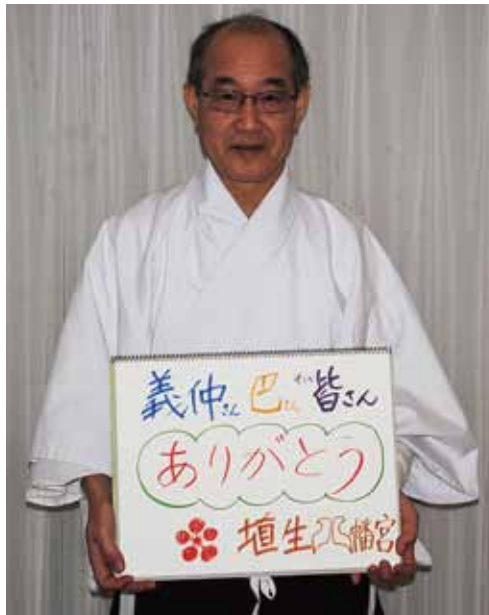 義仲さん 巴さん そして皆さん
ありがとう
埴生八幡宮